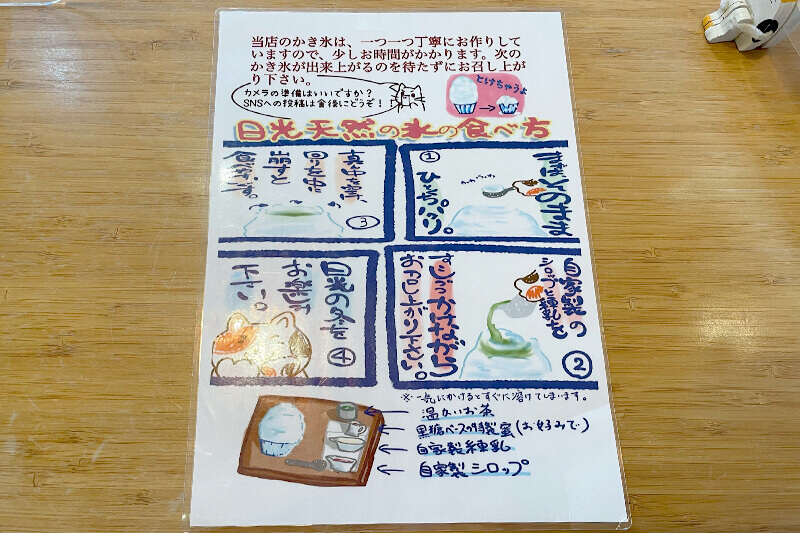 当店のかき氷は、一つ一つ丁寧にお作りして
いますので、少しお時間がかかります。次の
かき氷が出来上がるのを待たずにお召し上が
り下さい。
カメラの準備はいいですか？
SNSへの投稿は食後にどうぞ！
とけちゃうよ
日光天然の氷の食べ方
①
まずはそのまま
ひとくちパクリ。
②
自家製の
シロップと練乳を
少しづつかけながら
お召し上がり下さい。
③
真中を窪、
回りを中に
崩すと
食べやすいです。
④
日光の冬を
お楽しみ
下さい。
※一気にかけるとすぐに溶けてしまいます。
温かいお茶
黒糖ベースの特製蜜(お好みで)
自家製練乳
自家製シロップ